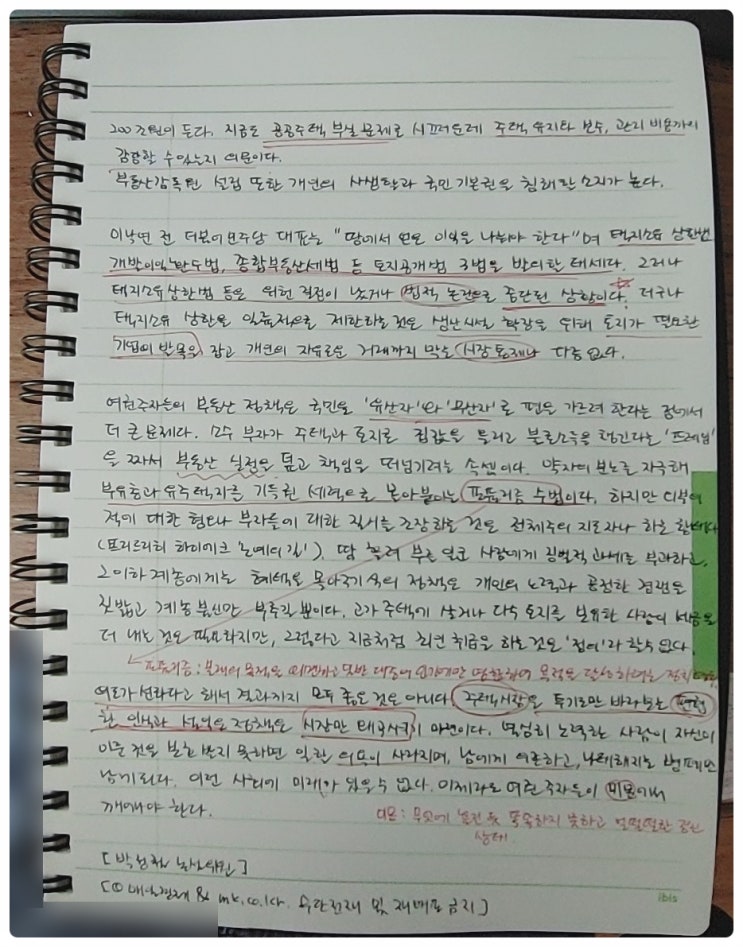 200조원이 든다. 지금도 공공주택 부실 문제로 시끄러운데 주택 유지와 보수, 관리 비용까지
감당할 수 있는지 의문이다.
부동산감독원 설립 또한 개인의 사생활과 국민 기본권을 침해할 소지가 높다.
이낙연 전 더불어민주당 대표는 "땅에서 얻은 이익을 나눠야 한다"며 택지소유 상한법
개발이익환수법, 종합부동산세법 등 토지공개법 3법을 발의할 태세다. 그러나
택지소유상한법 등은 위헌 결정이 났거나 법적 논란으로 중단된 상황이다. 더구나
택지소유 상한을 일률적으로 제한하는 것은 생산시설 확장을 위해 토지가 필요한
기업의 발목을 잡고 개인의 자유로운 거래까지 막는 시장통제나 다름 없다.
여권주자들의 부동산 정책은 국민을 '유산자'와 '무산자'로 편을 가르려 한다는 점에서
더 큰 문제다. 소수 부자가 주택과 토지로 집값을 올리고 불로소득을 챙긴다는 '프레임'
을 짜서 부동산 실정을 덮고 책임을 떠넘기려는 속셈이다. 약자의 분노를 자극해
부유층과 유주택자를 기득권 세력으로 몰아붙이는 포퓰리즘 수법이다. 하지만
적에 대한 혐오나 부자들에 대한 질시를 조장하는 것은 전체주의 지도자나 하는
(프리드리히 하이에크 '노예의 길'). 땅 훨려 부를 일군 사람에게 징벌적 과세를 부과하고,
그 이하 계층에게는 혜택을 몰아주기 식의 정책은 개인의 노력과 공정한 경쟁을
짓밟고 계층 불신만 부추길 뿐이다. 고가 주택에 살거나 다수 토지를 보유한 사람이 세금을
더 내는 것은 필요하지만, 그렇다고 지금처럼 죄인 취급을 하는 것은 '정의'라 할 수 없다.
포퓰리즘: 본래의 목적을 외면하고 일반 대중의 인기에만 영합하여 목적을 달성하려는 정치
의도가 선하다고 해서 결과까지 모두 좋은 것은 아니다. 주택시장을 투기로만 바라보는 편협
한 인식과 섣부른 정책은 시장만 왜곡시키기 마련이다. 열심히 노력한 사람이 자신이
이룬 것을 보호 받지 못하면 일할 의욕이 사라지며, 남에게 의존하고, 나태해지는 병폐만
남게 된다. 이런 사회에 미래가 있을 수 없다. 이제라도 여권주자들이 미몽에서
깨어나야 한다.
미몽: 무엇에 홀린 듯 똑똑하지 못하고 얼떨떨한 정신
상태
[박정철 논설위원]
[ⓒ 매일경제 & mk.co.kr. 무단전재 및 재배포 금지]
ibis